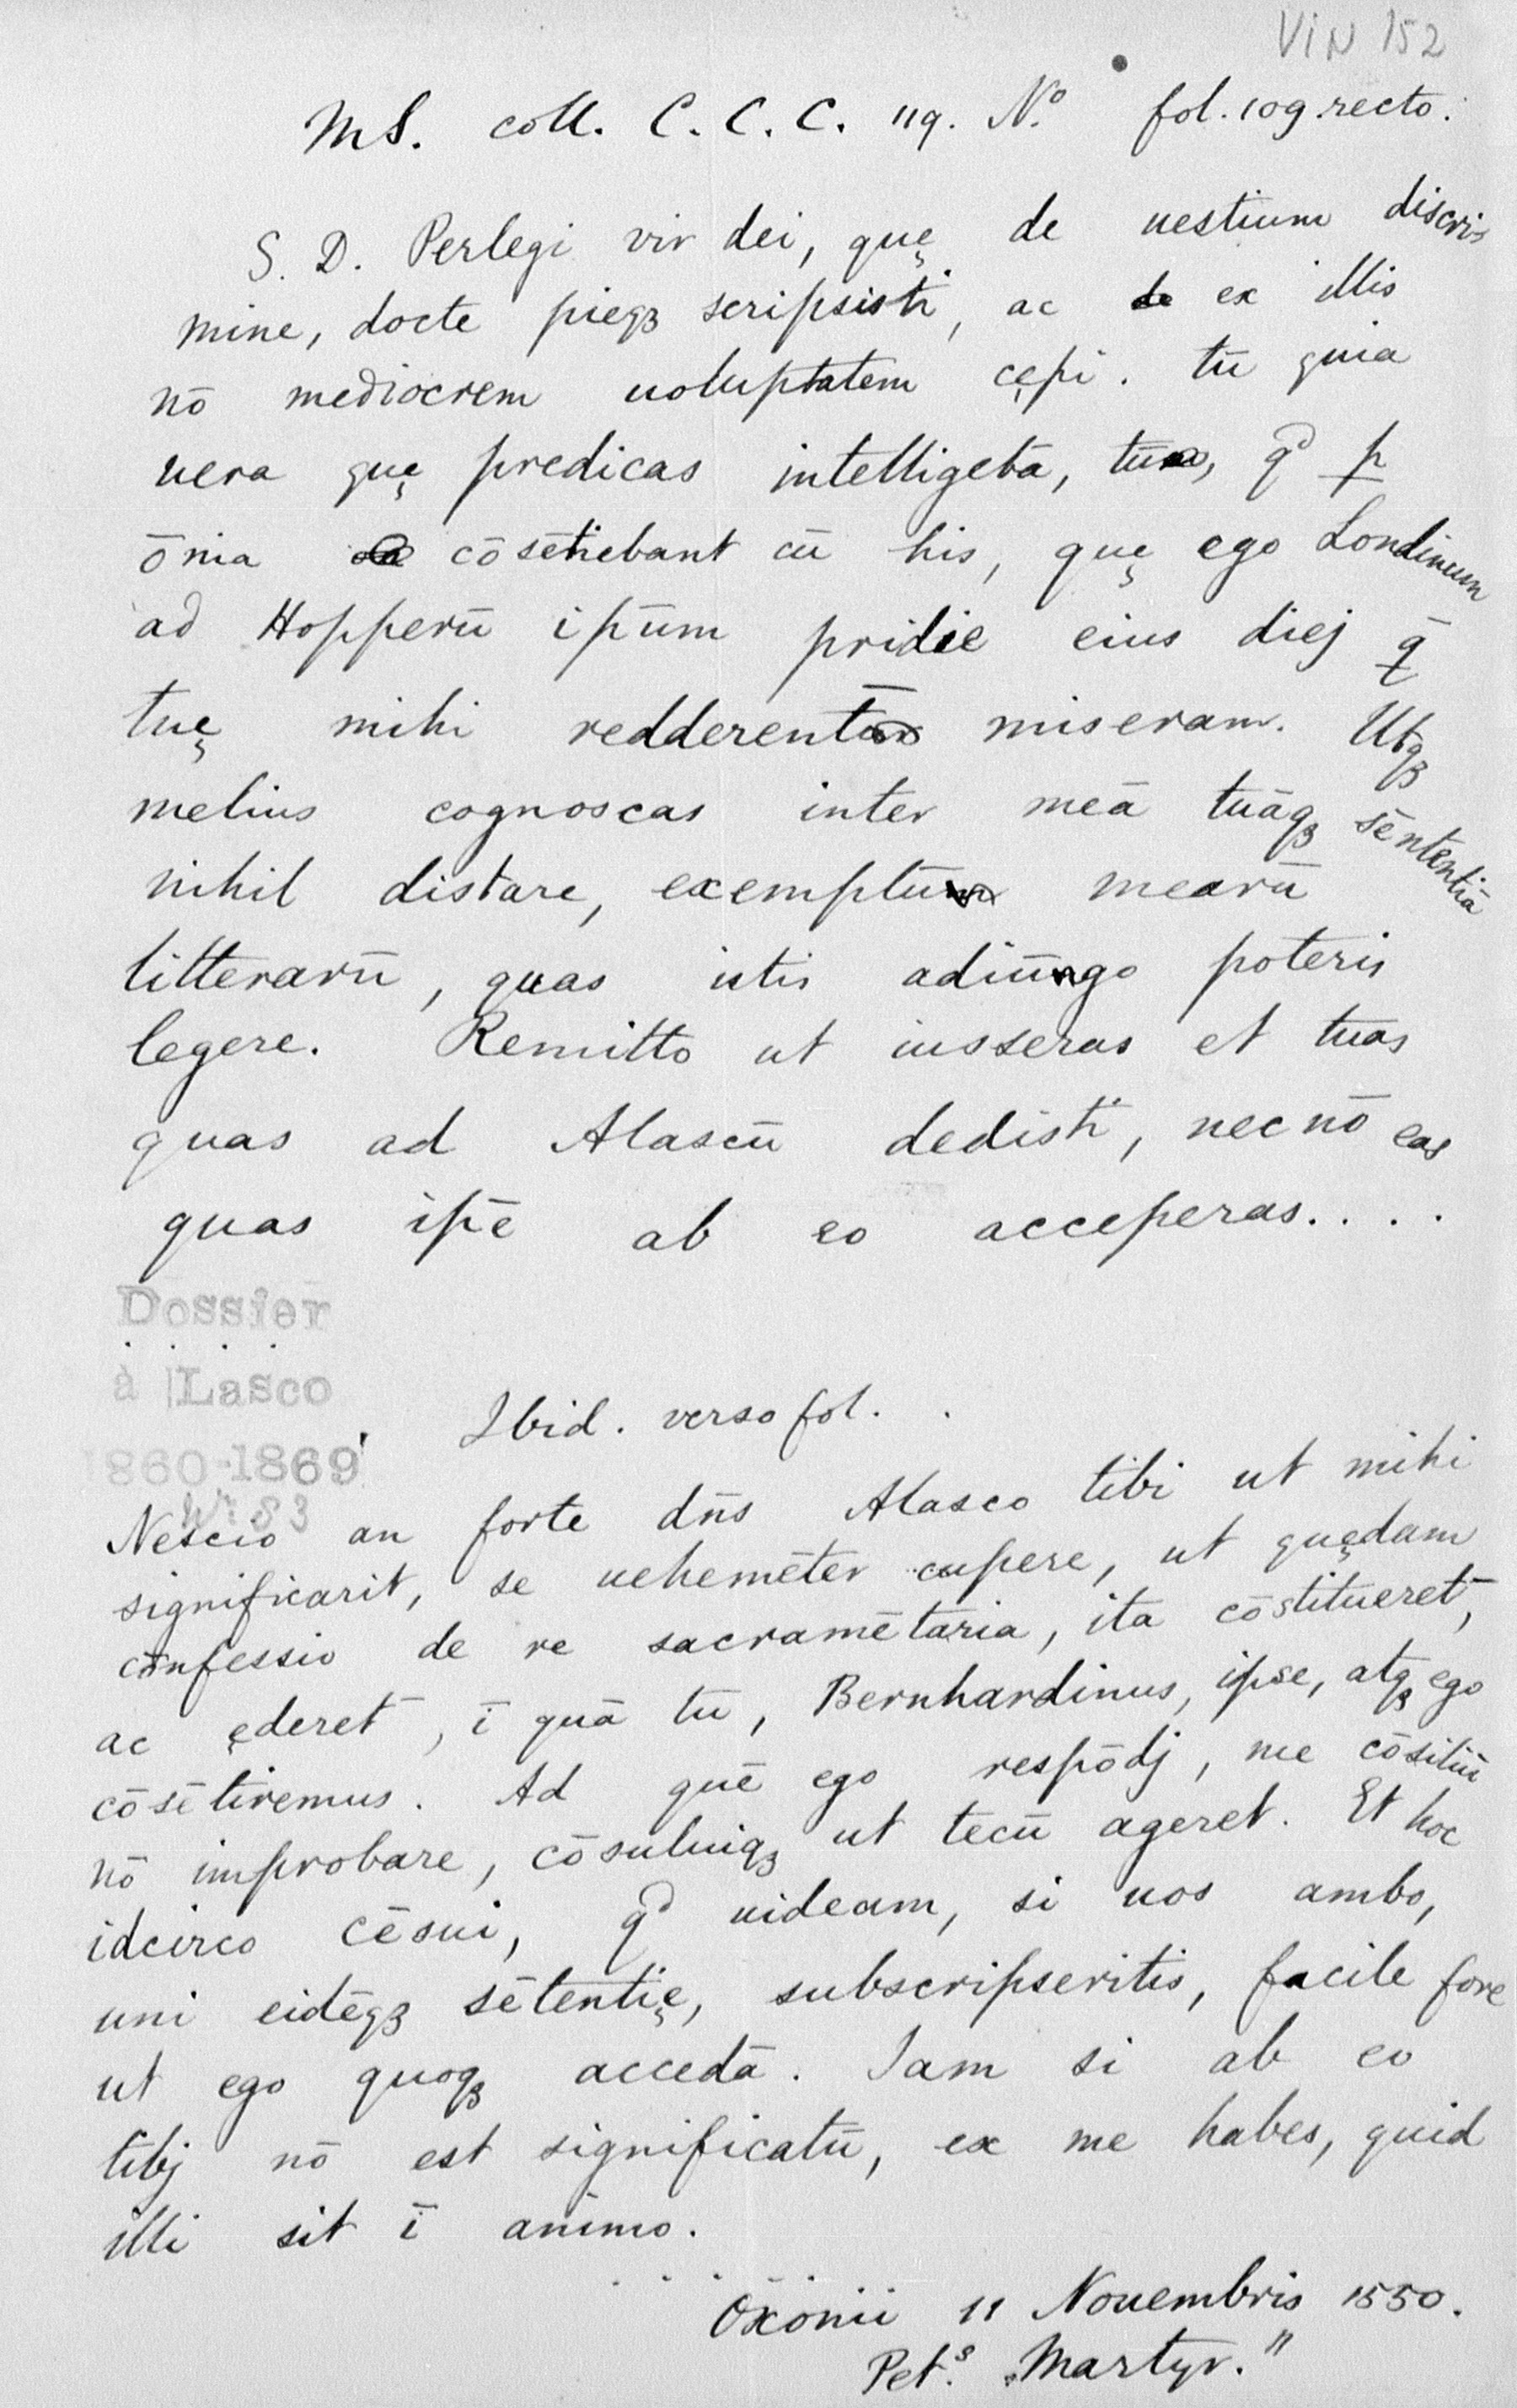 VIN 152
MS. coll. C. C. C. 119. Nº fol. 109. recto.
S. D. Perlegi vir dei, quę de uestium discri
mine, docte pieqȝ scripsisti, ac ex illis
nō mediocrem uoluptatem cępi. tū quia
uera quę predicas intelligebā, tū, qđ ꝑ
ōnia cōsētiebant cū his, quę ego Londinum
ad Hopperū ip̄um pridie eius diej q̄
tuę mihi redderent̄ miseram. Utqȝ
melius cognoscas inter meā tuāqȝ sēntentiā
nihil distare, exemplū mearū
litterarū, quas istis adiūngo poteris
legere. Remitto ut iusseras et tuas
quas ad Alascū dedisti, nec nō eas
quas ip̄e ab eo acceperas. . . .
Dossier
. . . .
à Lasco
1860-1869
Nr. 83
Ibid. verso fol. .
Nescio an forte dn̄s Alasco tibi ut mihi
significarit, se uehemēter cupere, ut quędam
cōnfessio de re sacramētaria, ita cōstitueret̄,
ac ęderet̄, ī quā tū, Bernhardinus, ipse, atqȝ ego
cōsētiremus. Ad quē ego respōdj, me cōsiliū
nō improbare, cōsuluiqȝ ut tecū ageret. Et hoc
idcirco cēsui, qđ uideam, si uos ambo,
uni eidēqȝ sētentię, subscripseritis, facile fore
ut ego quoqȝ accedā. Iam si ab eo
tibj nō est significatū, ex me habes, quid
illi sit ī animo.
. . . . .
Oxonii 11 Nouembris 1550.
Pet.s „Martyr."